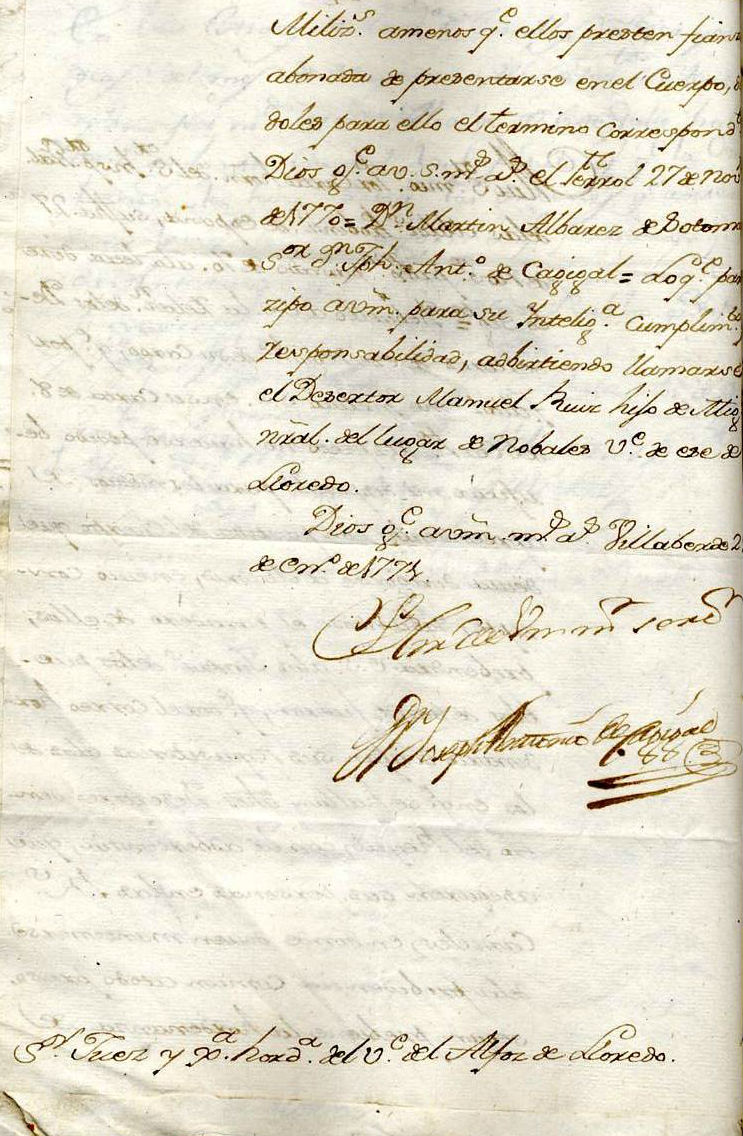 Miliz.s amenos q.e ellos presten fianz
abonada de presentarse en el Cuerpo,
doles para ello el termino correspond.te
Dios g.e a v. s. m.s a.s el ferrol 27 de Nov
de 1770 = D.n Martin Albarez de Sotom
S.or D.n Jph. Ant.o de Cagigal = Lo q.e par
zipo a vm. para su Intelig.a cumplim.to
responsabilidad, adbirtiendo llamarse
el Desertor Manuel Ruiz hijo de Mig
nral. del lugar de Nobales v.e de ese de
Lloredo.
Dios g.e a vm. m.s a.s Villaberde 2
de en.o de 1771.
m.r ser.or
D.n Joseph Antonio de Cagigal
S.r Juez y hord.a del v.e del Alfoz de Lloredo.